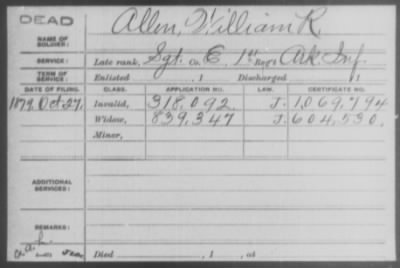 DEAD
Allen, William R.
NAME OF SOLDIER:
SERVICE: Late rank, Sgt. Co. E, 1st Reg't Ark. Inf
TERM OF SERVICE: Enlisted , 1 Discharged , 1
DATE OF FILING. CLASS. APPLICATION NO. LAW. CERTIFICATE NO.
1879, Oct. 27, Invalid, 318,092 J. 1,069,794
Widow, 839,347 J. 604,530.
Minor,
ADDITIONAL SERVICES:
REMARKS:
Died , 1 , at